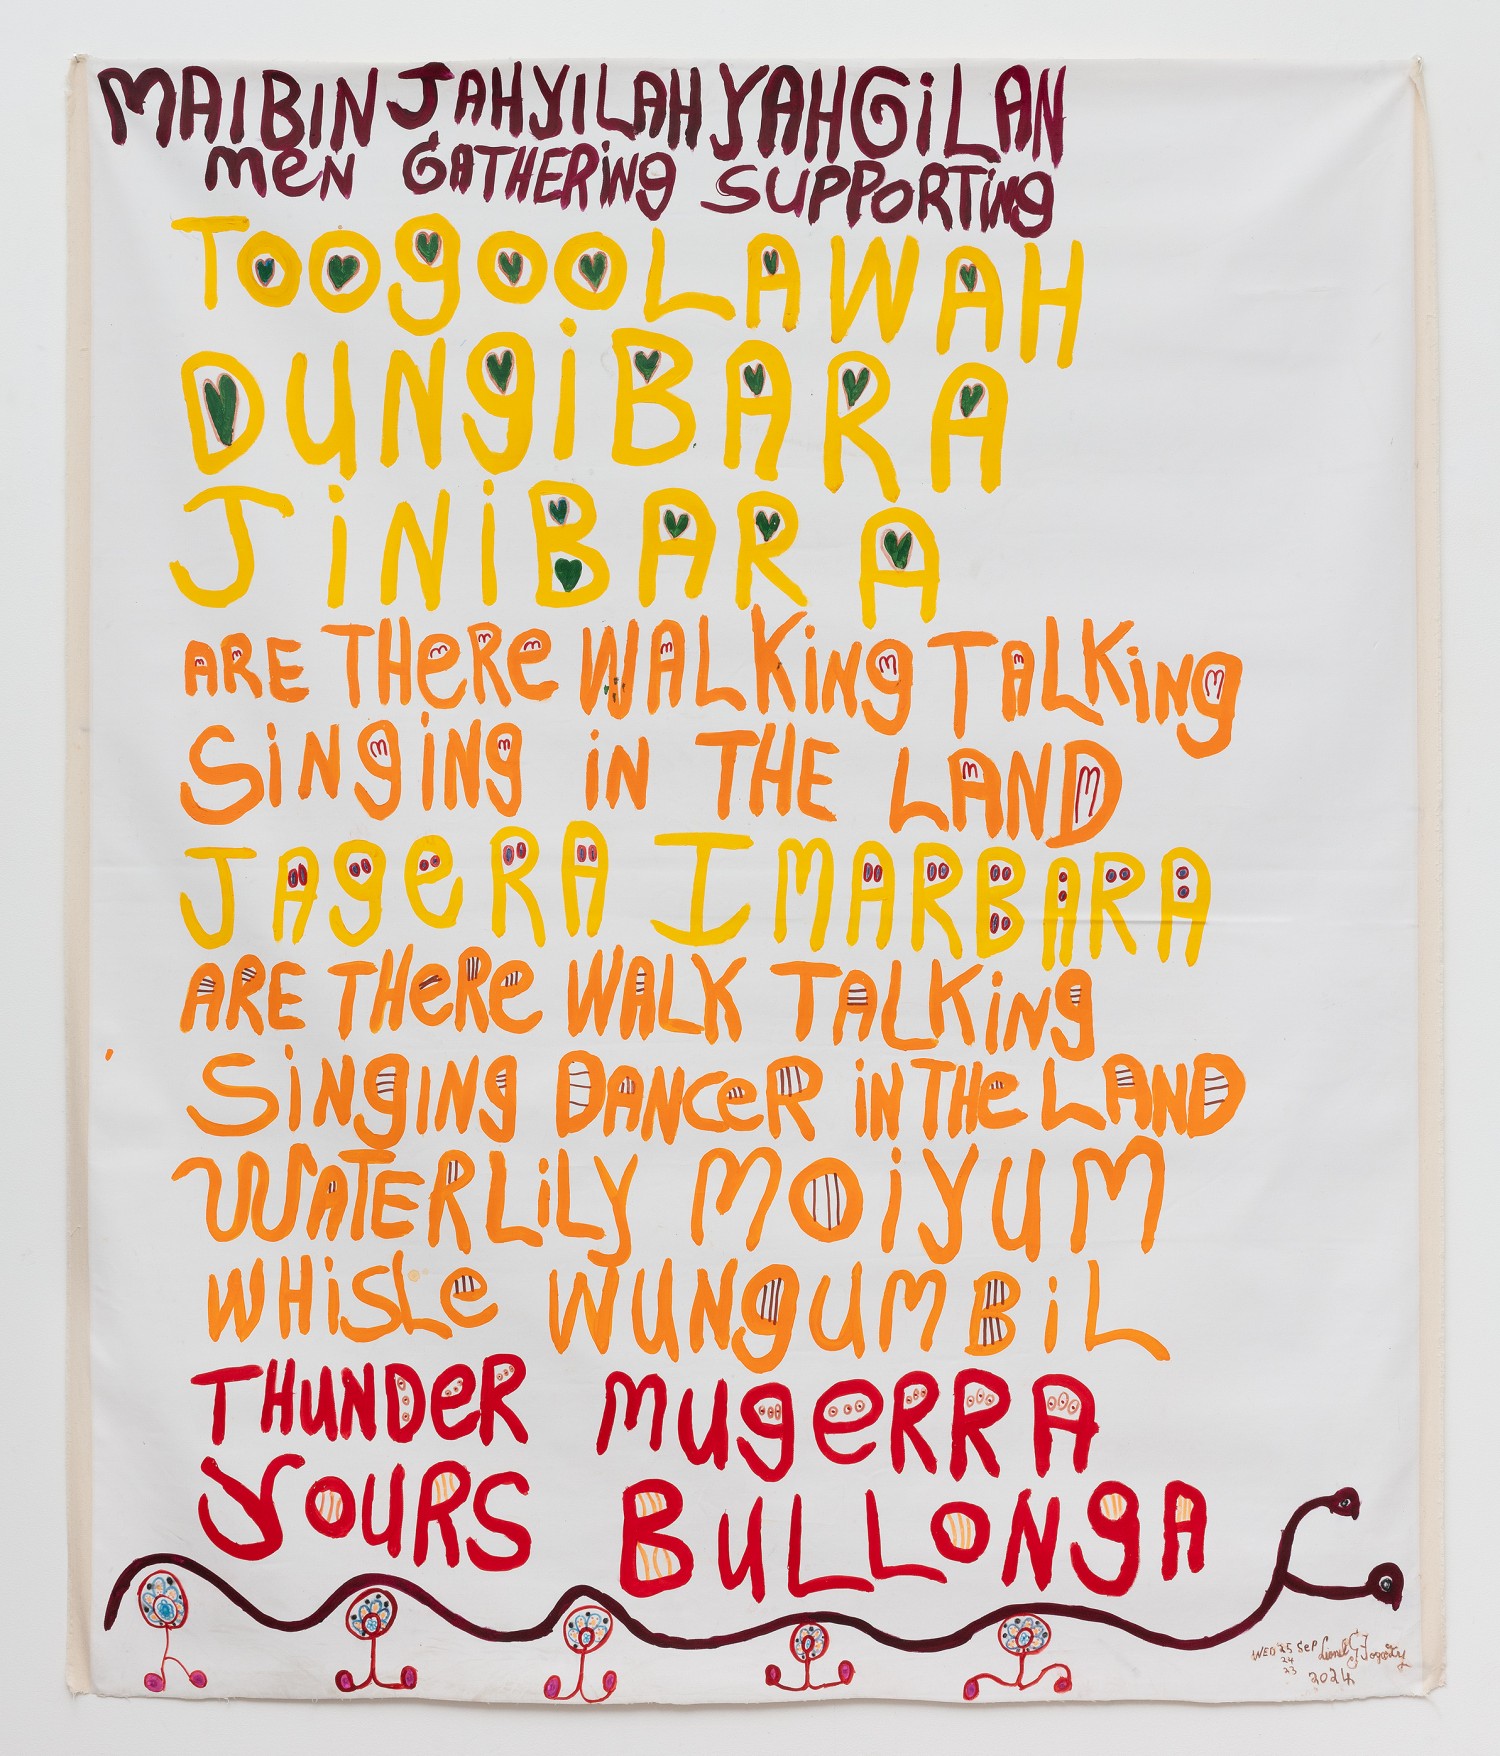 MAIBIN JAHYILAH YAHGiLAN
meN GATHERiNg SUPPORTiNg
TOOgOOLAWAH
DUNgiBARA
JiNiBARA
ARE THeRe WALKiNg TALKiNg
SiNgiNg iN THE LAND
JAgeRA IMARBARA
ARE THeRe WALK TALKiNg
SiNgINg DANCeR iN THe LAND
WATERLiLy MOiyUM
WHiSLe WUNgUMBiL
THUNDeR MUgeRRA
yOURS BULLONgA
WED 25 SeP Lionel G Fogarty
24
23
2024